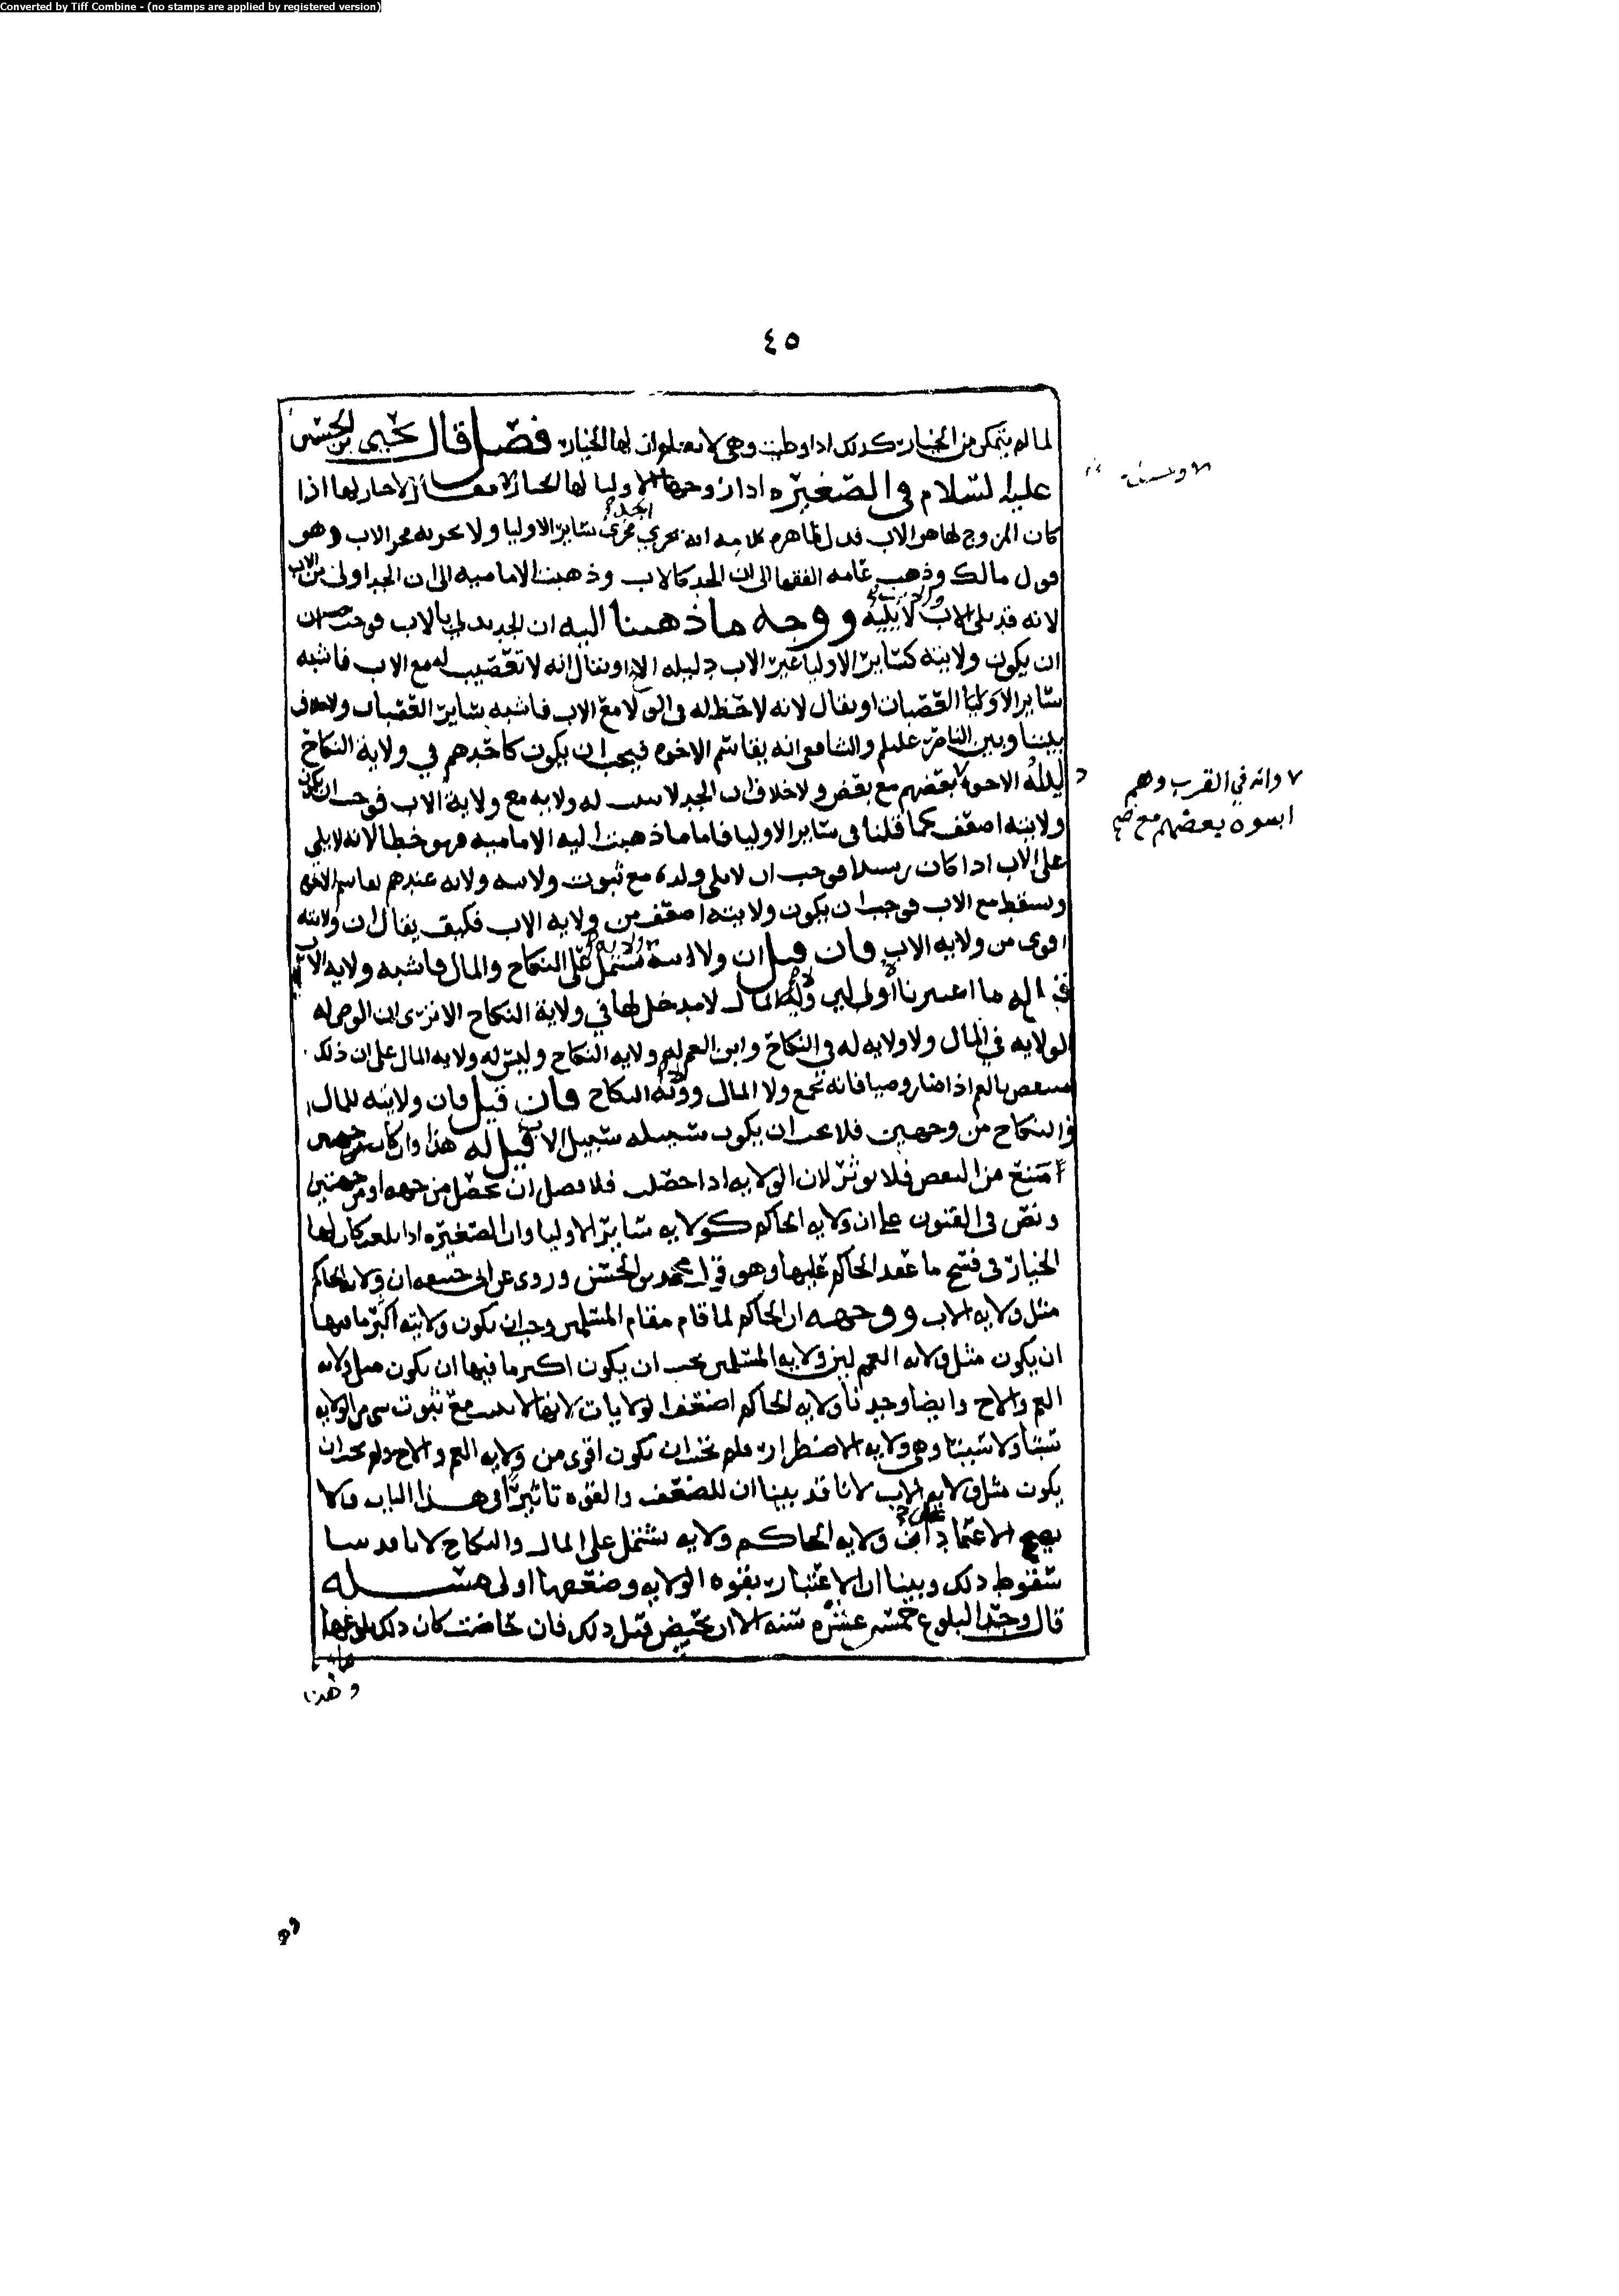 Converted by Tiff Combine - (no stamps are applied by registered version)
٤٥
لما لم يتمكن من الخيار كذلك اذا وطئت وهي لا تعلم ان لها الخيار فصل قال يحيى بن الحسين
عليه السلام في الصغيرة اذا زوجها الاوليا لها الخيار لا خيار لها اذا
كان المزوج لها هو الاب فدل ظاهر كلامه انه يجري الجد مجرى سائر الاوليا ولا يجريه مجرى الاب وهو
قول مالك وذهب عامة الفقها الى ان الجد كالاب وذهبت الامامية الى ان الجد اولى من الاب
لانه قد يلي الاب والاب لا يليه ووجه ما ذهبنا اليه ان الجد يدلي بالاب فوجب ان
ان يكون ولايته كسائر الاوليا غير الاب دليله الاخ او يقال انه لا تعصيب له مع الاب فاشبه
سائر الاوليا العصبات او يقال لانه لا حظ له في الولا مع الاب فاشبه سائر العصبات ولا خلاف
بيننا وبين الناصر عليلم والشافعي انه يقاسم الاخوه فيجب ان يكون كاحدهم في ولاية النكاح
دليله الاخوه بعضهم مع بعض ولا خلاف ان الجد لا يثبت له ولايه مع ولاية الاب فوجب ان يكون
ولايته اضعف كما قلنا في سائر الاوليا فاما ما ذهبت اليه الامامية فهو خطا لانه لا يلي
على الاب اذا كان رشيدا فوجب ان لا يلي ولده مع ثبوت ولايته ولانه عندهم يقاسم الاخوه
ويسقط مع الاب فوجب ان يكون ولايته اضعف من ولايه الاب فكيف يقال ان ولايته
اقوى من ولايه الاب فان قيل ان ولايته ولايه تشتمل على النكاح والمال فاشبه ولايه الاب
قيل له ما اعتبرناه اولى لان ولاية المال لا مدخل لها في ولاية النكاح الا ترى ان الوصي له
الولايه في المال ولا ولايه له في النكاح وابن العم له ولايه النكاح وليس له ولايه المال على ان ذلك
ينتقض بالعم اذا صار وصيا فانه يجمع ولا المال وولاية النكاح فان قيل فان ولايته للمال
والنكاح من وجهين فلا يجب ان يكون سبيله سبيل الاب قيل له هذا وان كان من جهتين
امتنع من النقض فلا يوثر لان الولايه اذا حصلت فلا فصل ان تحصل من جهه او من جهتين
ونص في الفنون على ان ولايه الحاكم كولايه سائر الاوليا وان الصغيره اذا بلغت كان لها
الخيار في فسخ ما عقد الحاكم عليها وهو قول محمد بن الحسن وروي عن ابي حنيفه ان ولايه الحاكم
مثل ولايه الاب ووجهه ان الحاكم لما قام مقام المسلمين وجب ان يكون ولايته اكثر ما فيها
ان يكون مثل ولايه العم لان ولايه المسلمين يجب ان يكون اكثر ما فيها ان يكون مثل ولايه
العم والاخ وايضا وجدنا ولايه الحاكم اضعف الولايات لانها لا تثبت مع ثبوت شي من الولايه
نسبا ولا سببا وهي ولايه الاضطرار فلم يجب ان يكون اقوى من ولايه العم والاخ ولم يجز ان
يكون مثل ولايه الاب لانا قد بينا ان للضعف والقوه تاثيرا في هذا الباب ولا
يصح الاعتماد على ان ولايه الحاكم ولايه تشتمل على المال والنكاح لانا قد بينا
سقوط ذلك وبينا ان الاعتبار بقوه الولايه وضعفها اولى مسله
قال وحد البلوغ خمس عشره سنه الا ان تحيض قبل ذلك فان حاضت كان ذلك بلوغها
وهذا
٧ وانه في القرب وهم
اسوه بعضهم مع بعض